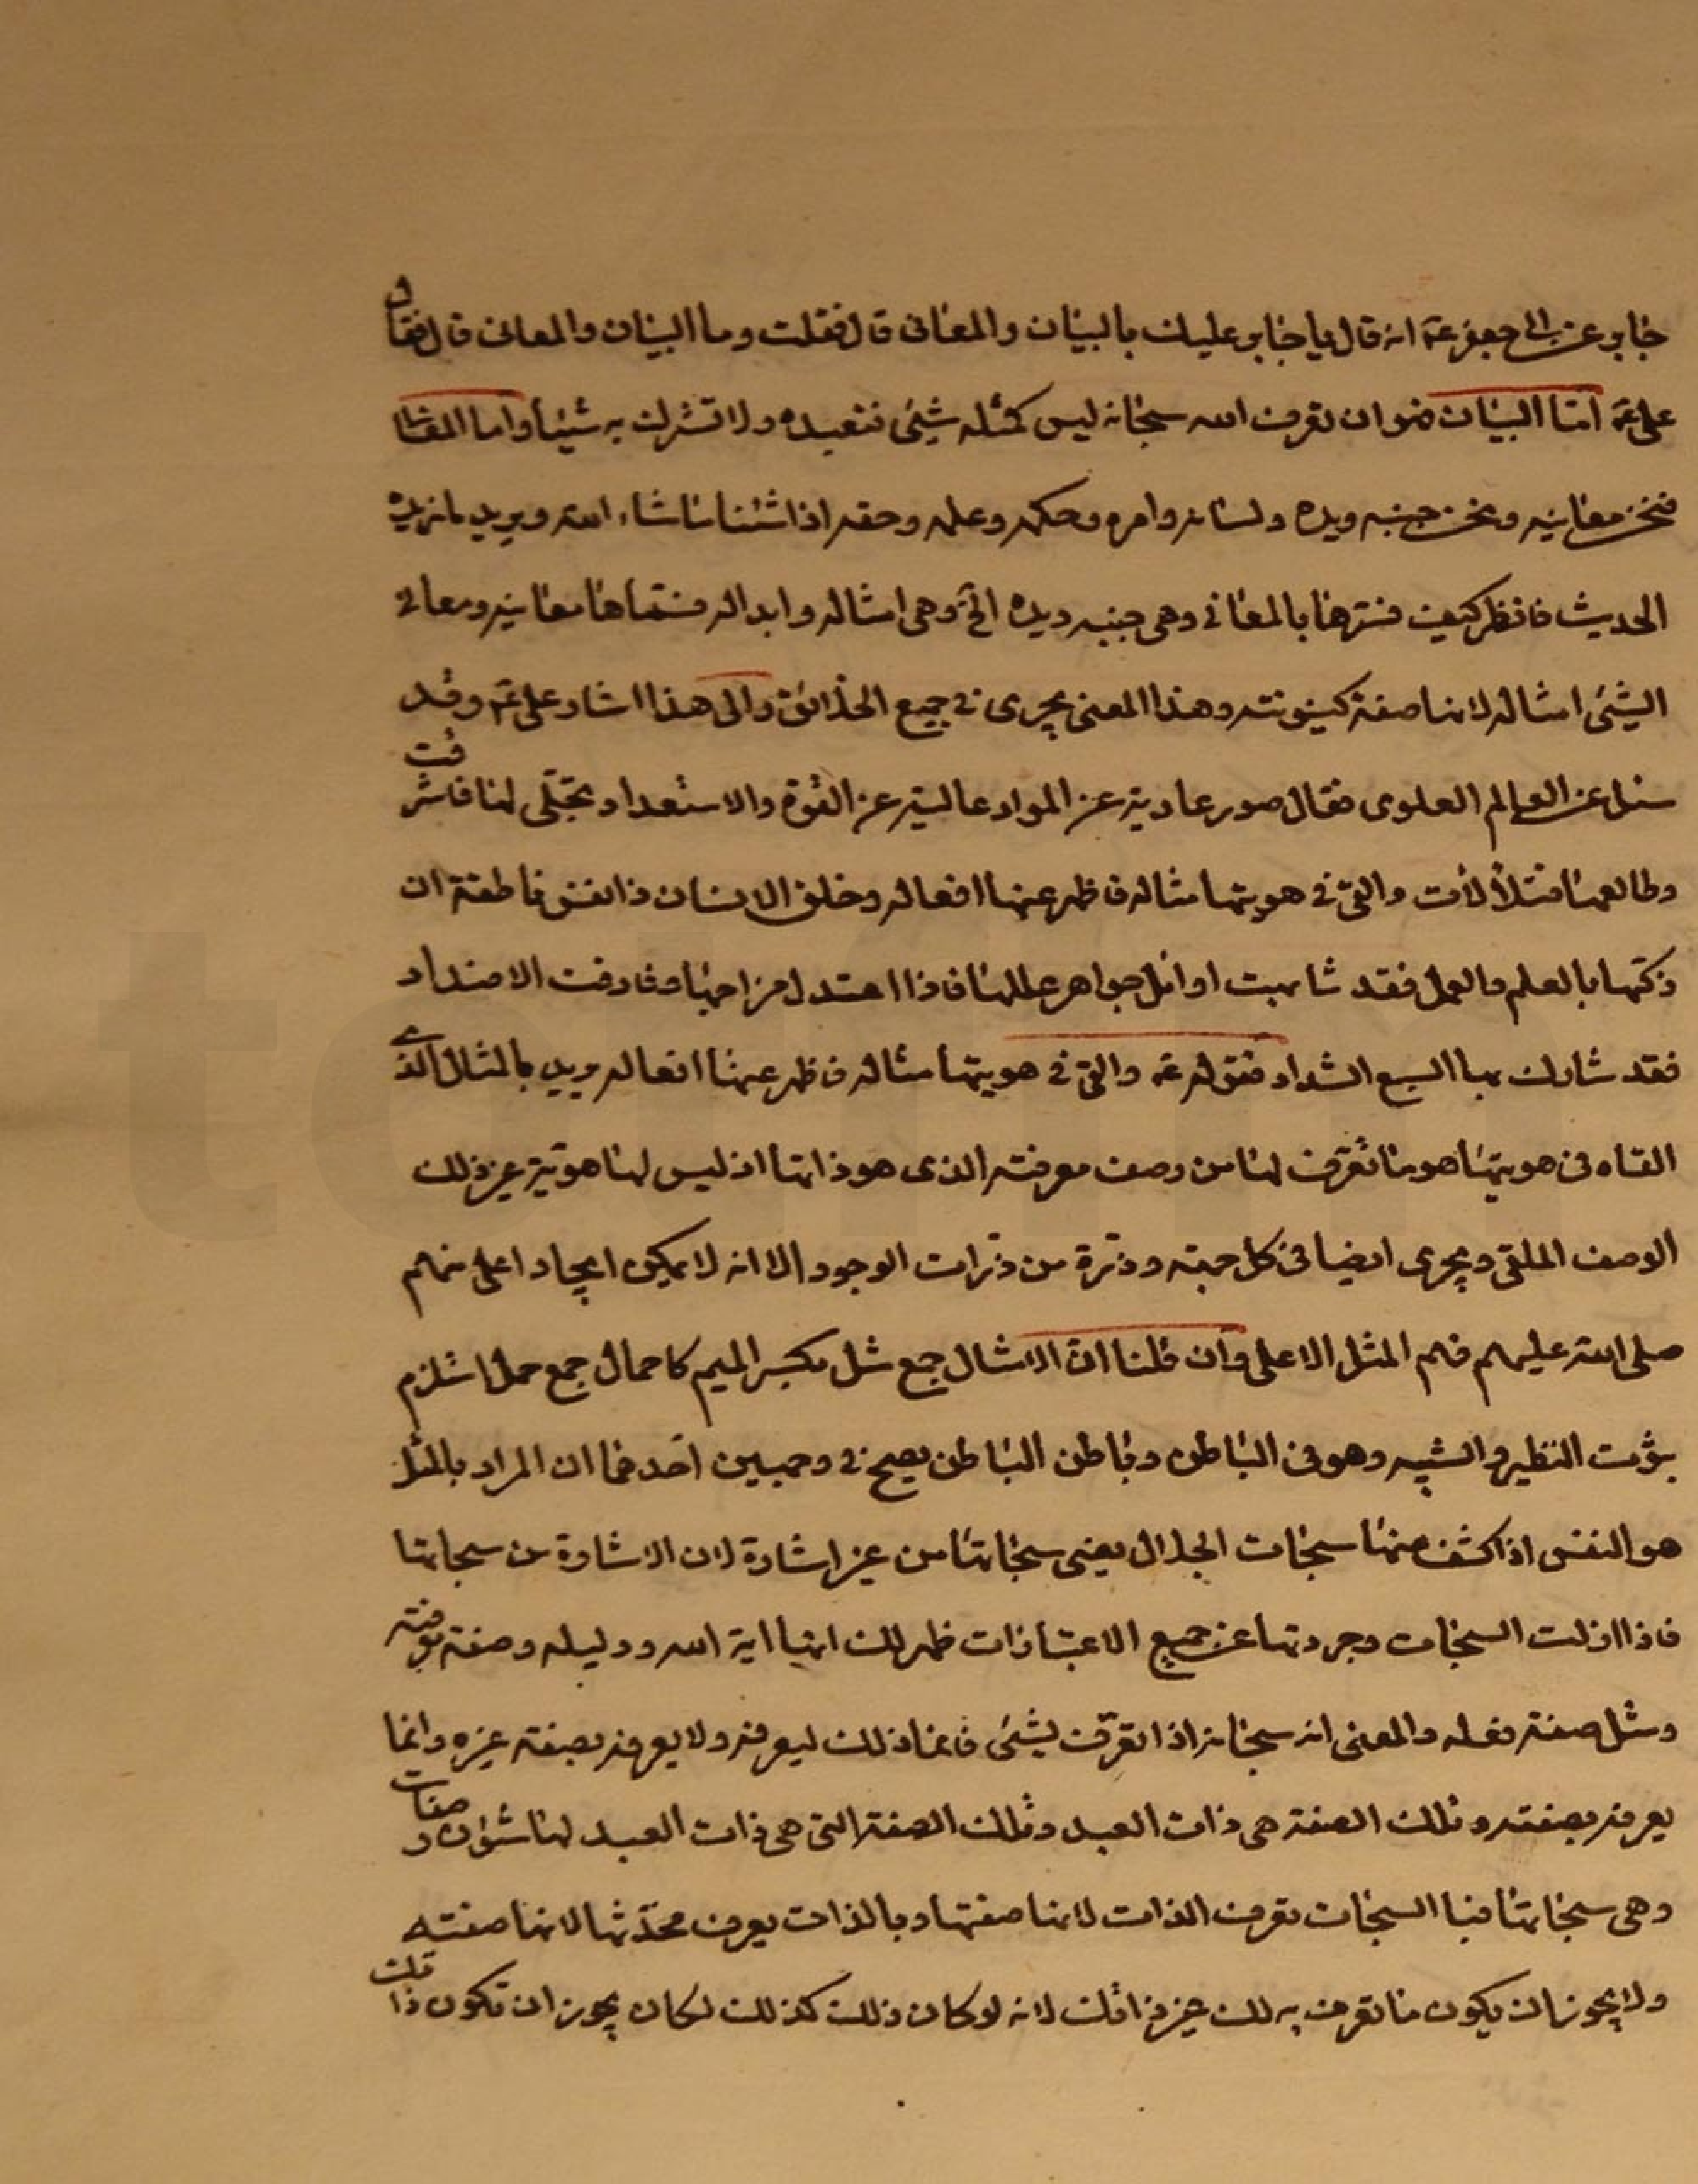 جابر عن ابي جعفر عۤ انه قال يا جابر عليك بالبيان والمعاني قال فقلت وما البيان والمعاني قال فقال
علي عۤ امّا البيان فهو ان تعرف الله سبحانه ليس كمثله شيئ فتعبده ولا تشرك به شيئا وامّا المعاني
فنحن معانيه ونحن جنبه ويده ولسانه وامره وحكمه وعلمه وحقه اذا شئنا شاء الله ويريد ما نريده
الحديث فانظر كيف فسّرها بالمعاني وهي جنبه ويده الخ وهي امثاله وابداله فسمّاها معانيه ومعاني
الشيئ امثاله لانها صفة كينونته وهذا المعنى يجري في جميع الخلائق والى هذا اشار علي عۤ وقد
سئل عن العالم العلوي فقال صور عارية عن المواد عالية عن القوة والاستعداد تجلّى لها فاشرقت
وطالعها فتلألأت والقى في هويتها مثاله فاظهر عنها افعاله وخلق الانسان ذا نفس ناطقة ان
زكّها بالعلم والعمل فقد شابهت اوائل جواهر عللها فاذا اعتدل مزاجها وفارقت الاضداد
فقد شارك بها السبع الشداد فقوله عۤ والقى في هويتها مثاله فاظهر عنها افعاله يريد بالمثال الذي
القاه في هويتها هو ما تعرّف لها من وصف معرفته الذي هو ذاتها اذ ليس لها هويّة غير ذلك
الوصف الملقى ويجري ايضا في كل حبة وذرّة من ذرّات الوجود الا انه لا يمكن ايجاد اعلى منهم
صلى الله عليهم فهم المثل الاعلى وان قلنا انّ الامثال جمع مثل بكسر الميم كاحمال جمع حمل استلزم
ثبوت النظير والشبيه وهو في الباطن وباطن الباطن يصح في وجهين احدهما ان المراد بالمثل
هو النفس اذا كشف عنها سبحات الجلال يعني سبحاتها من غير اشارة لان الاشارة من سبحاتها
فاذا ازلت السبحات وجردتها عن جميع الاعتبارات ظهر لك انها اية الله ودليله وصفة معرفته
ومثل صفة فعله والمعنى انه سبحانه اذا تعرّف لشيئ فانما ذلك ليعرفه ولا يعرفه بصفة غيره وانما
يعرفه بصفته وتلك الصفة هي ذات العبد وتلك الصفة التي هي ذات العبد لها شئون وصفات
وهي سبحاتها فبالسبحات تعرف الذات لانها صفتها وبالذات يعرف محدثها لانها صفته
ولا يجوز ان يكون ما تعرف به لك غير ذاتك لانه لو كان ذلك كذلك لكان يجوز ان تكون ذاتك